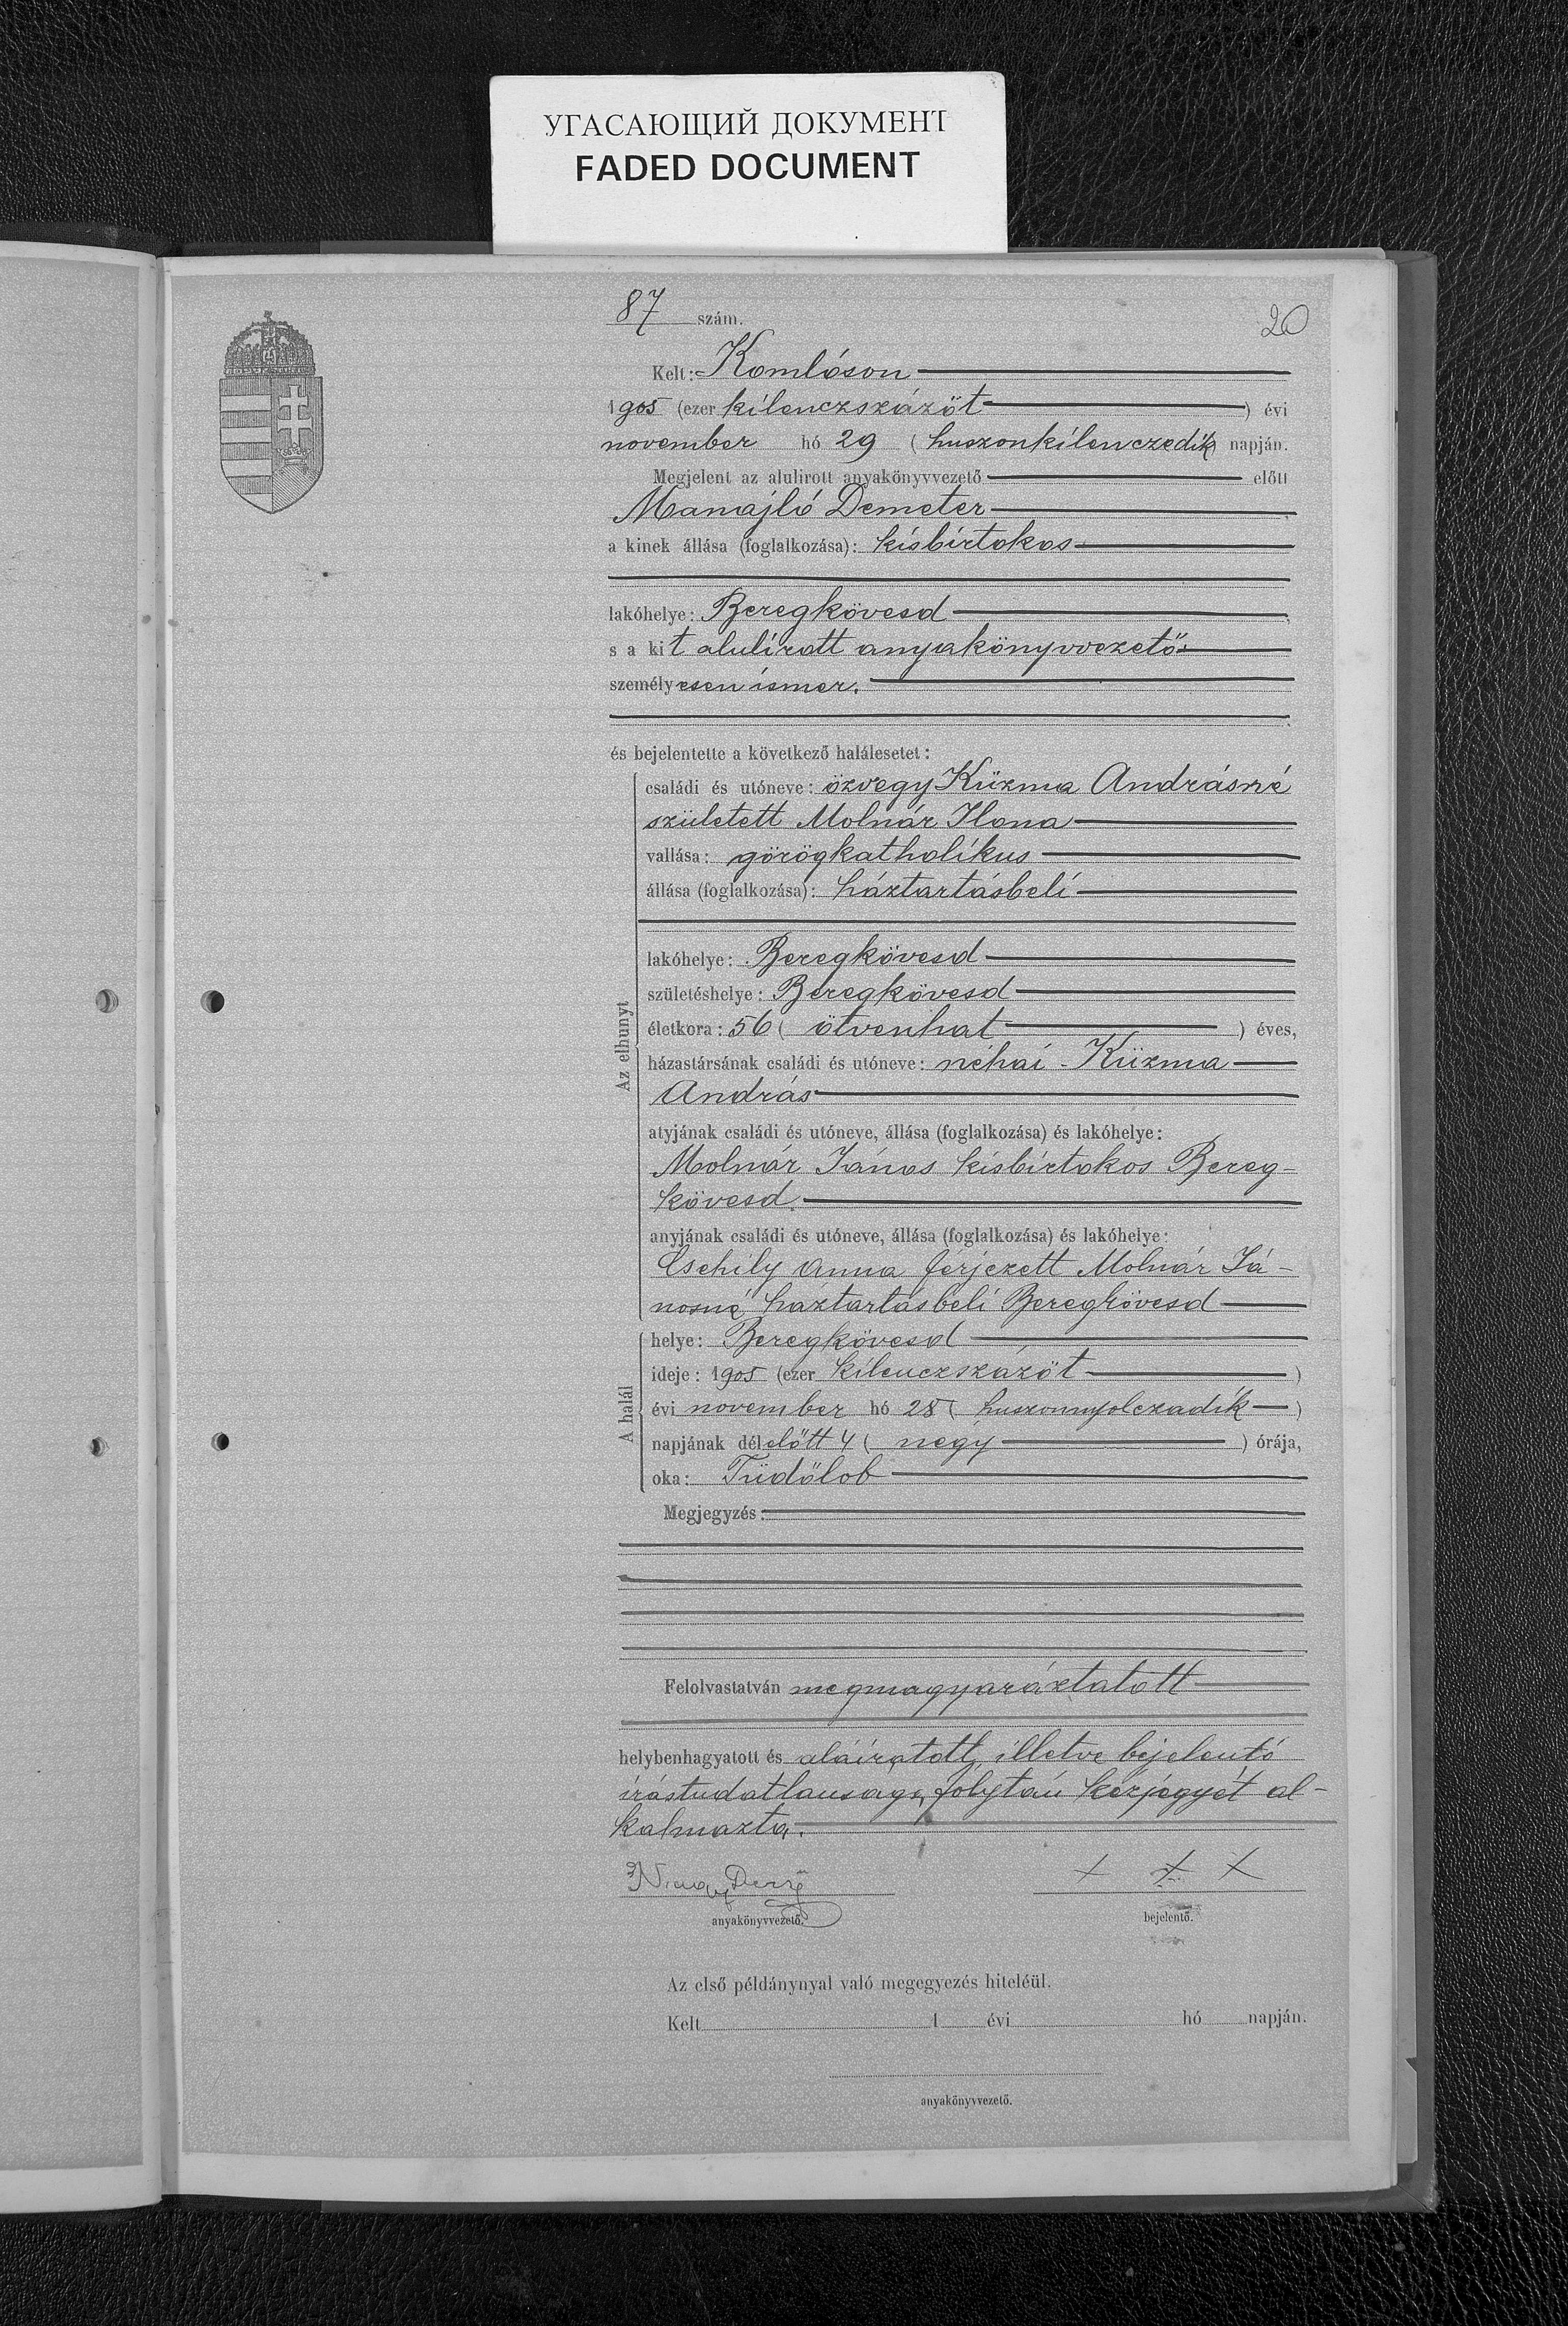 УГАСАЮЩИЙ ДОКУМЕНТ
FADED DOCUMENT
87 szám.
20
Kelt: Komlóson
1905 (ezer kilenczszázöt) évi
november hó 29 (huszonkilenczedik) napján.
Megjelent az alulirott anyakönyvvezető előtt
Manajló Demeter
a kinek állása (foglalkozása): kisbirtokos
lakóhelye: Beregkövesd
s a kit alulirott anyakönyvvezető
személyesen ismer.
és bejelentette a következő halálesetet:
Az elhunyt
családi és utóneve: özvegy Küzma Andrásné
született Molnár Ilona
vallása: görögkatholikus
állása (foglalkozása): háztartásbeli
lakóhelye: Beregkövesd
születéshelye: Beregkövesd
életkora: 56 (ötvenhat) éves,
házastársának családi és utóneve: néhai - Küzma
András
atyjának családi és utóneve, állása (foglalkozása) és lakóhelye:
Molnár János kisbirtokos Bereg-
kövesd.
anyjának családi és utóneve, állása (foglalkozása) és lakóhelye:
Csehily Anna férjezett Molnár Já-
nosné háztartásbeli Beregkövesd
A halál
helye: Beregkövesd
ideje: 1905 (ezer kilenczszázöt)
évi november hó 28 (huszonnyolczadik)
napjának délelőtt 4 (négy) órája,
oka: Tüdőlob
Megjegyzés:
Felolvastatván megmagyaráztatott
helybenhagyatott és aláíratott, illetve bejelentő
írástudatlansága folytán kézjegyét al-
kalmazta.
x x x
anyakönyvvezető.
bejelentő.
Az első példánynyal való megegyezés hiteléül.
Kelt 1 évi hó napján.
anyakönyvvezető.